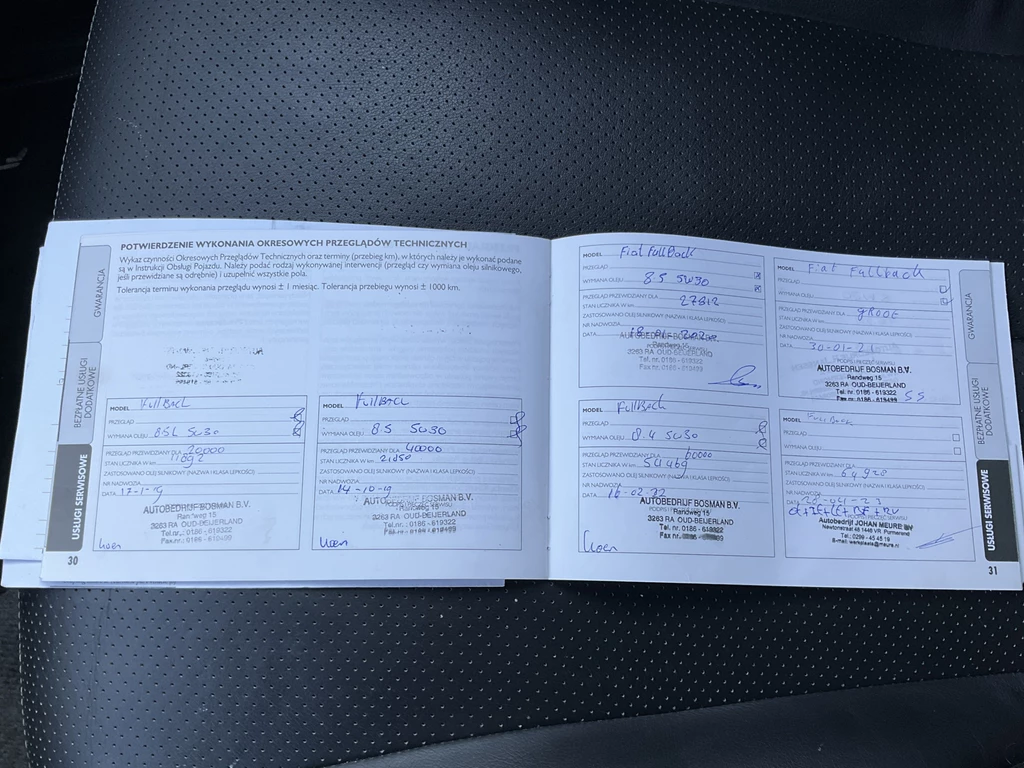 POTWIERDZENIE WYKONANIA OKRESOWYCH PRZEGLĄDÓW TECHNICZNYCH
Wykaz czynności Okresowych Przeglądów Technicznych oraz terminy (przebieg km), w których należy je wykonać podane
są w Instrukcji Obsługi Pojazdu. Należy podać rodzaj wykonywanej interwencji (przegląd czy wymiana oleju silnikowego,
jeśli przewidziane są odrębnie) i uzupełnić wszystkie pola.
Tolerancja terminu wykonania przeglądu wynosi ± 1 miesiąc. Tolerancja przebiegu wynosi ± 1000 km.
GWARANCJA
BEZPŁATNE USŁUGI
DODATKOWE
USŁUGI SERWISOWE
MODEL Fullback
PRZEGLĄD
WYMIANA OLEJU 8.5L 5w30
PRZEGLĄD PRZEWIDZIANY DLA 20000
STAN LICZNIKA W km
ZASTOSOWANO OLEJ SILNIKOWY (NAZWA I KLASA LEPKOŚCI)
NR NADWOZIA
DATA 17-1-19
AUTOBEDRIJF BOSMAN B.V.
Randweg 15
3263 RA OUD-BEIJERLAND
Tel.nr.: 0186 - 619322
Fax nr.: 0186 - 619499
Koen
30
MODEL Fullback
PRZEGLĄD
WYMIANA OLEJU 8.5 5w30
PRZEGLĄD PRZEWIDZIANY DLA 40000
STAN LICZNIKA W km 21850
ZASTOSOWANO OLEJ SILNIKOWY (NAZWA I KLASA LEPKOŚCI)
NR NADWOZIA
DATA 14-10-19
AUTOBEDRIJF BOSMAN B.V.
Randweg 15
3263 RA OUD-BEIJERLAND
Tel.nr.: 0186 - 619322
Fax nr.: 0186 - 619499
Koen
MODEL Fiat Fullback
PRZEGLĄD
WYMIANA OLEJU 8.5 5w30
PRZEGLĄD PRZEWIDZIANY DLA
STAN LICZNIKA W km 27812
ZASTOSOWANO OLEJ SILNIKOWY (NAZWA I KLASA LEPKOŚCI)
NR NADWOZIA
DATA
AUTOBEDRIJF BOSMAN B.V.
Randweg 15
3263 RA OUD-BEIJERLAND
Tel. nr. 0186 - 619322
Fax nr. 0186 - 619499
MODEL Fiat Fullback
PRZEGLĄD
WYMIANA OLEJU
PRZEGLĄD PRZEWIDZIANY DLA
STAN LICZNIKA W km
ZASTOSOWANO OLEJ SILNIKOWY (NAZWA I KLASA LEPKOŚCI)
NR NADWOZIA
DATA 30-01-21
PODPIS I PIECZĘĆ SERWISU
AUTOBEDRIJF BOSMAN B.V.
Randweg 15
3263 RA OUD-BEIJERLAND
Tel. nr. 0186 - 619322
Fax nr. 0186 - 619499
MODEL Fullback
PRZEGLĄD
WYMIANA OLEJU 8.4 5w30
PRZEGLĄD PRZEWIDZIANY DLA 60000
STAN LICZNIKA W km 54469
ZASTOSOWANO OLEJ SILNIKOWY (NAZWA I KLASA LEPKOŚCI)
NR NADWOZIA
DATA 16-02-22
AUTOBEDRIJF BOSMAN B.V.
Randweg 15
3263 RA OUD-BEIJERLAND
Tel.nr.: 0186 - 619322
Fax nr.
Koen
MODEL Fullback
PRZEGLĄD
WYMIANA OLEJU
PRZEGLĄD PRZEWIDZIANY DLA
STAN LICZNIKA W km 64928
ZASTOSOWANO OLEJ SILNIKOWY (NAZWA I KLASA LEPKOŚCI)
NR NADWOZIA
DATA
Autobedrijf JOHAN MEURE BV
Newtonstraat 46 1446 VR Purmerend
Tel.: 0299 - 45 45 19
GWARANCJA
BEZPŁATNE USŁUGI
DODATKOWE
USŁUGI SERWISOWE
31